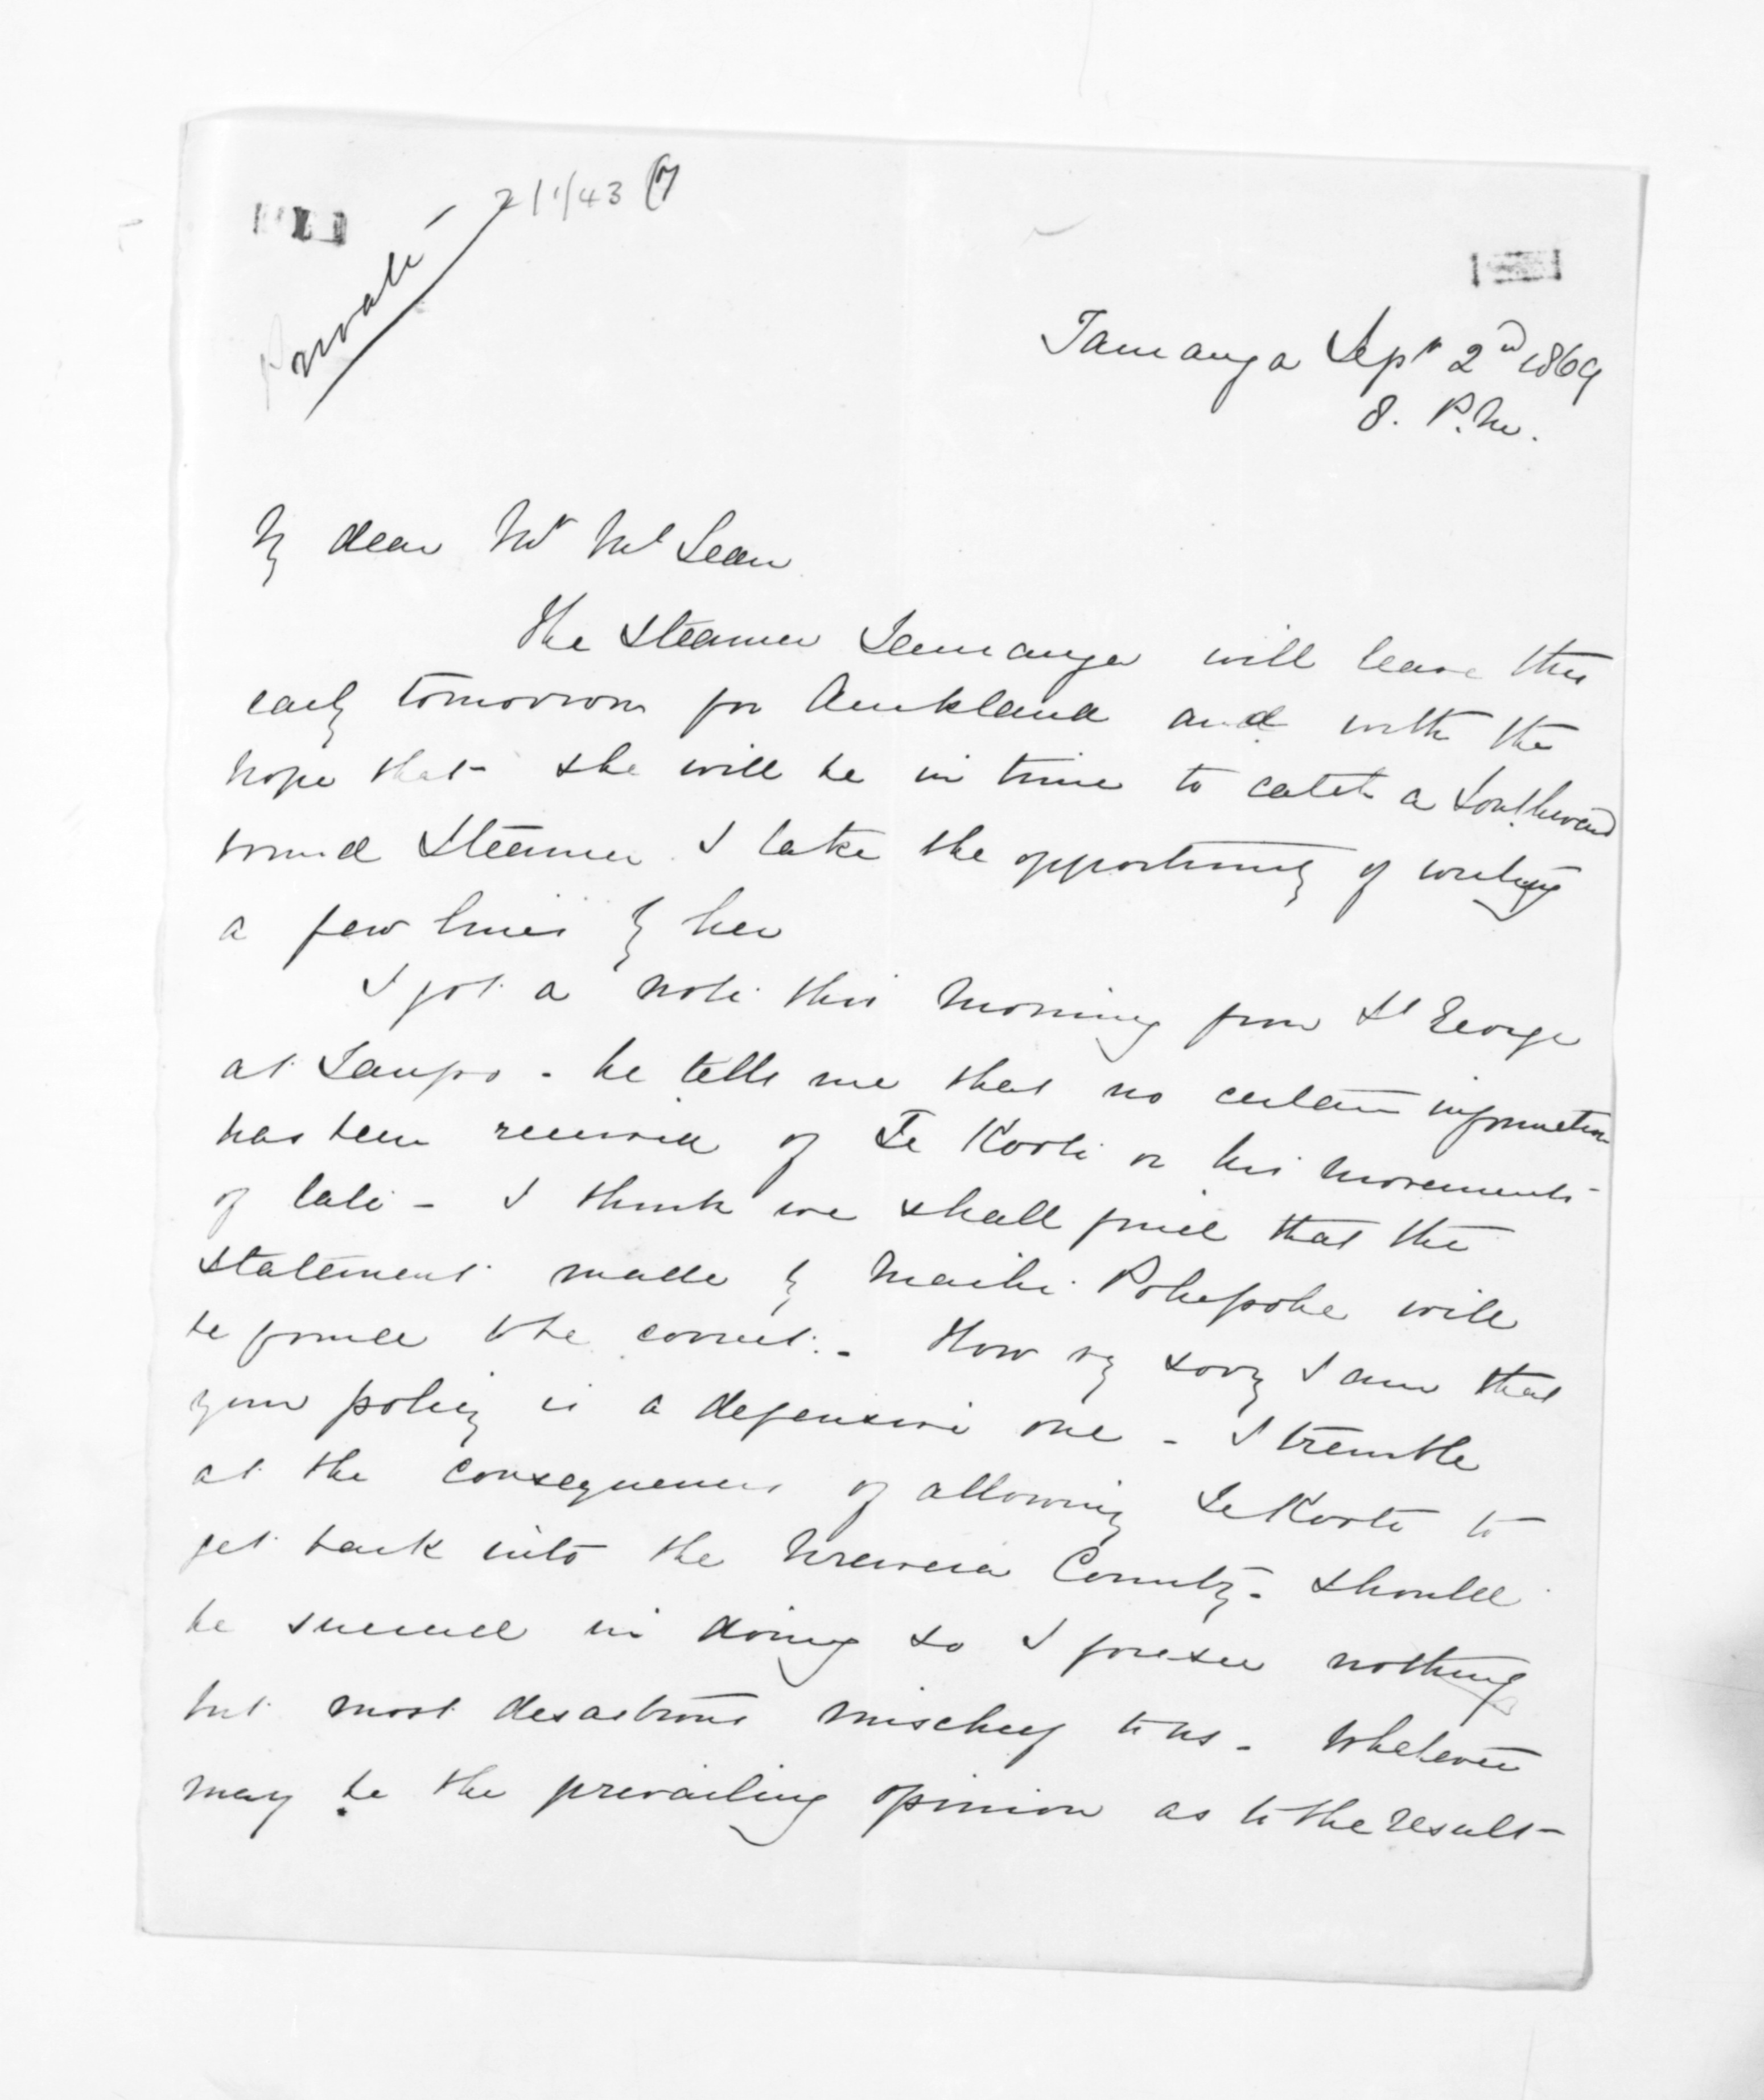 Private
Tauranga Septr 2nd 1869
8. P.M.
My dear Mr McLean
The Steamer Tauranga will leave this
early tomorrow for Auckland and with the
hope that she will be in time to catch a Southward
bound Steamer I take the opportunity of writing
a few lines by her
I got a note this morning from St George
at Taupo - he tells me that no certain information
has been received of Te Kooti or his movements
of late - I think we shall find that the
statement made by Maihi Pohepohe will
be found the correct. - How very sorry I am that
your policy is a defensive one - I tremble
at the consequences of allowing Te Kooti to
get back into the Urewera Country - should
he succeed in doing so I foresee nothing
but most desastrous mischief to us - Whatever
may be the prevailing opinion as to the result